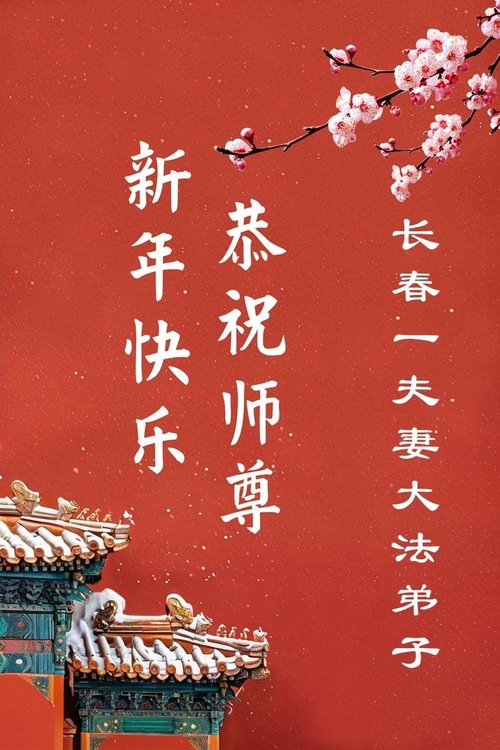 长春一夫妻大法弟子
恭祝师尊
新年快乐